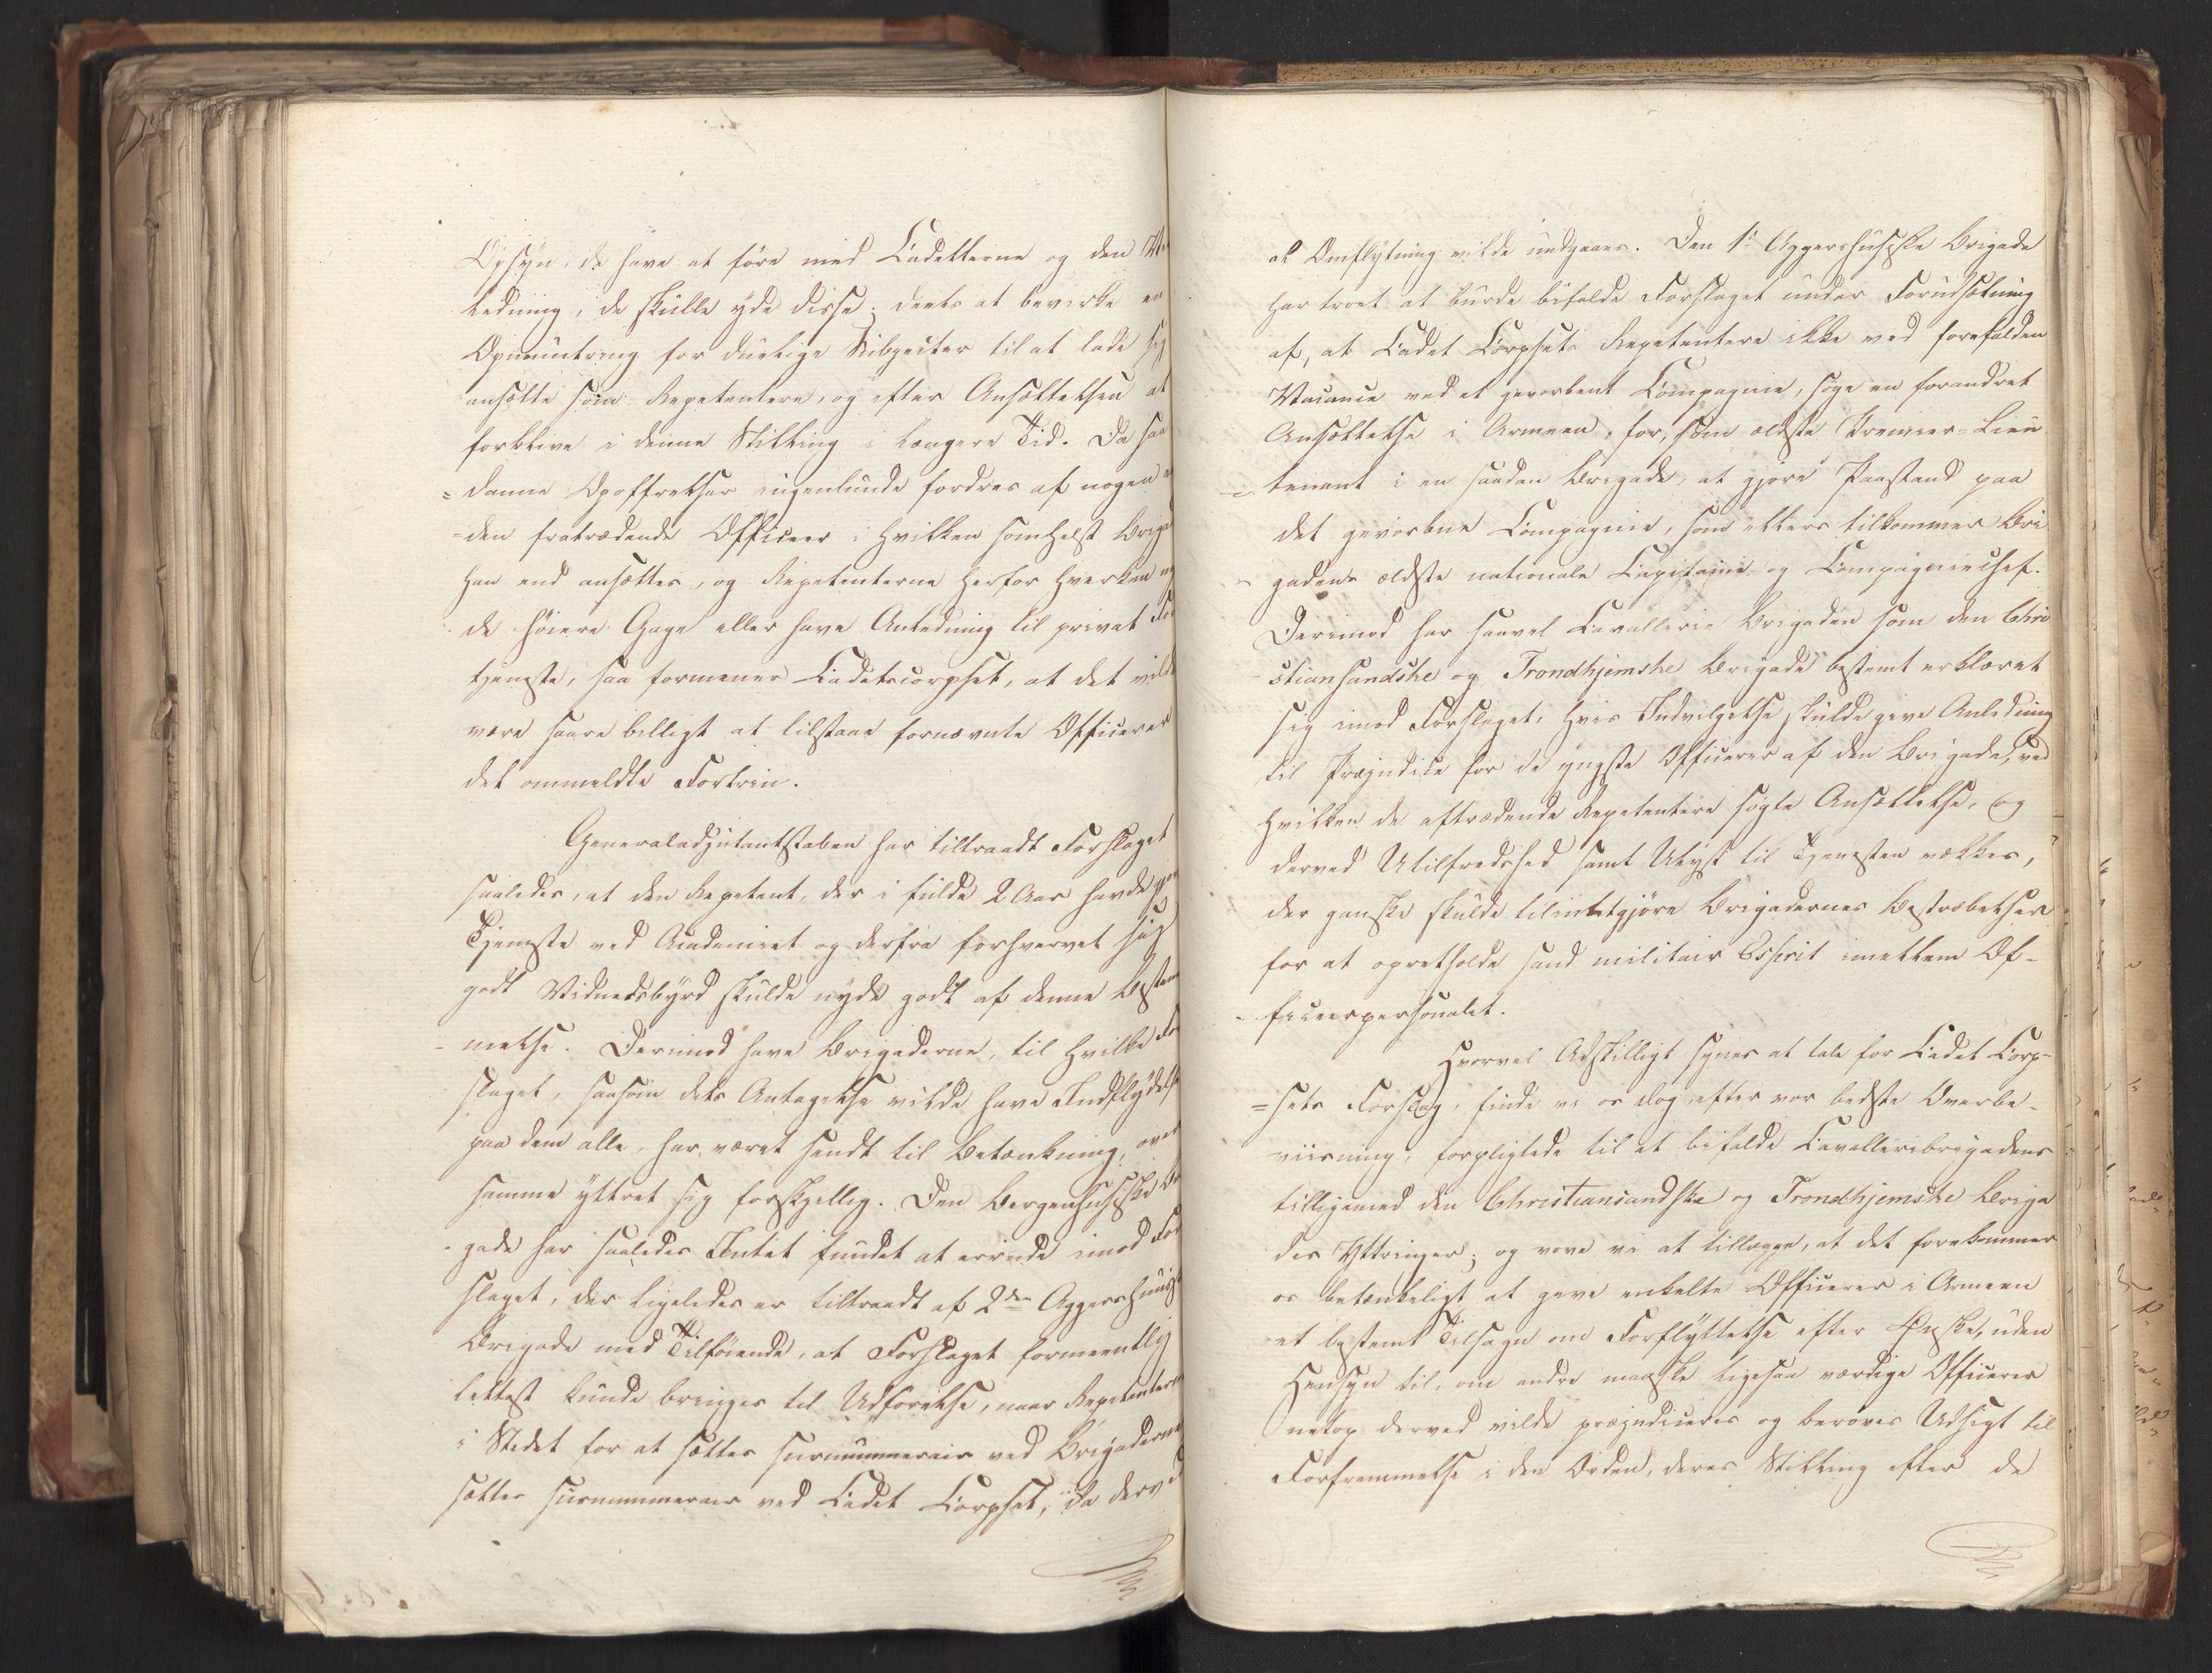 Opsyn, de have at føre med Cadetterne og den Vei
ledning, de skulle yde disse; deels at bevirke en
Opmuntring for duelige Subjecter til at lade sig
ansætte som Repetentere, og efter Ansættelsen at
forblive i denne Stilling i længere Tid. Da saa
=danne Opoffrelser ingenlunde fordres af nogen
=den fratrædende Officeer i hvilken somhelst Briga
han end ansættes, og Repetenterne herfor hverken
de høiere Gage eller have Anledning til privat For
tjeneste, saa formener Cadetcorpset, at det vilde
være saare billigt at tilstaae fornævnte Officerer
det ommeldte Fortrin.
Generaladjutantstaben har tiltraadt Forslaget
saaledes, at den Repetent, der i fulde 2 Aar havde gjort
Tjeneste ved Academiet og derfra forhvervet sig
godt Vidnedsbyrd skulde nyde godt af denne Bestem
-melse. Derimod have Brigaderne, til hvilke For
slaget, saasom dets Antagelse vilde have Indflydelse
paa dem alle, har været sendt til Betænkning, over
samme yttret sig forskjellig. Den Bergenhusiske Bri
-gade har saaledes Intet fundet at erindre imod For
slaget, der ligeledes er tiltraadt af 2den Aggershuusiske
Brigade med Tilføiende, at Forslaget formeentlig
lettest kunde bringes til Udførelse, naar Repetenterne
i Stedet for at sættes surnummerair ved Brigaderne
sættes surnummerair ved Cadet Corpset, da derved
al Omflytning vilde undgaaes. Den 1ste Aggershusiske Brigade
har troet at burde bifalde Forslaget under Forudsætning
af, at Cadet Corpsets Repetentere ikke ved forefalden
Vacance ved et gevorbent Compagnie, søge en forandret
Ansættelse i Armeen, for, som ældste Premier-Lieu
=tenant i en saadan Brigade, at gjøre Paastand paa
det gevorbne Compagnie, som ellers tilkommer Bri
-gadens ældste nationale Capitaine og Compagniechef.
Derimod har saavel Cavallerie Brigaden som den Chri
-stiansandske og Trondhjemske Brigade bestemt erklæret
sig imod Forslaget, hvis Indvilgelse skulde give Anledning
til Præjudice for de yngste Officerer af den Brigade, ved
hvilken de aftrædende Repetentere søgte Ansættelse, og
derved Utilfredshed samt Ulyst til Tjenesten vækkes,
der ganske skulde tilintetgjøre Brigadernes Bestræbelser
for at opretholde sand militair Esprit imellem Of-
-ficeerpersonalet.
Hvorvel Adskilligt synes at tale for Cadet Corp-
=sets Forslag, finde vi os dog efter vor bedste Overbe-
viisning, forpligtede til at bifalde Cavalleribrigadens
tilligemed den Christiansandske og Trondhjemske Briga
des Yttringer; og vove vi at tillægge, at det forekommer
os betænkeligt at give enkelte Officerer i Armeen
et bestemt Tilsagn om Forflyttelse efter Ønske, uden
Hensyn til, om andre maaske ligesaa værdige Officerer
netop derved vilde præjudiceres og berøves Udsigt til
Forfremmelse i den Orden, deres Stilling efter de